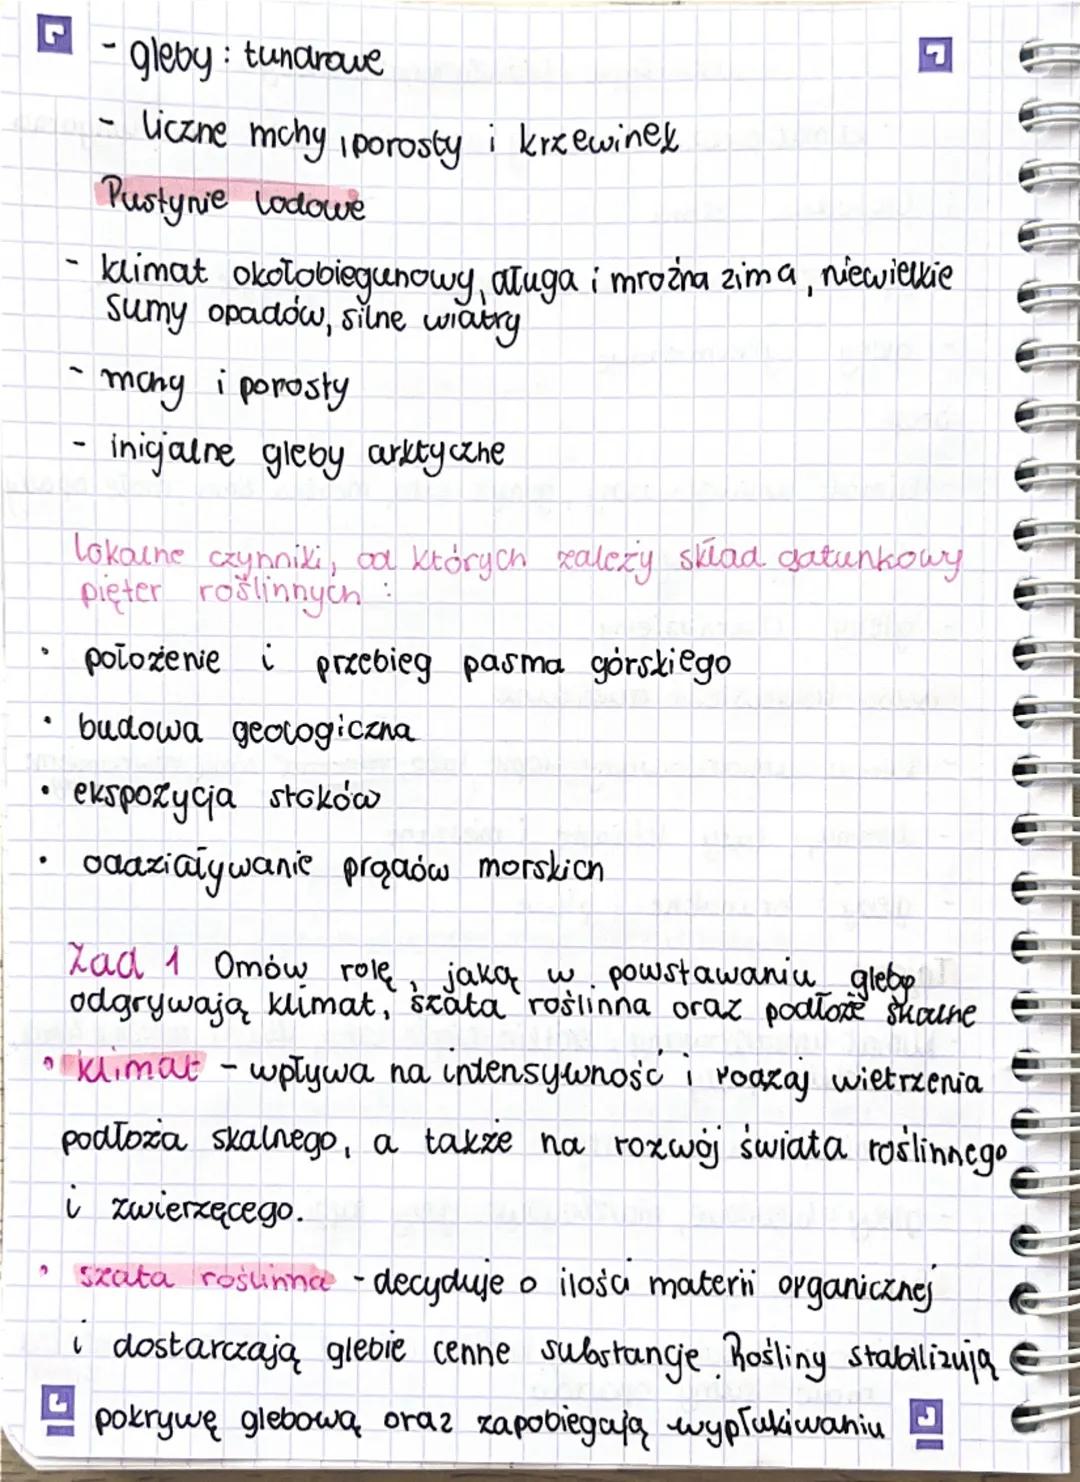 - gleby: tundrowe
- liczne mchy, porosty i krzewinek
Pustynie lodowe
- klimat okołobiegunowy, długa i mroźna zima, niewielkie
sumy opadów, silne wiatry
- mchy i porosty
- inicjalne gleby arktyczne
lokalne czynniki, od których zależy skład gatunkowy
pięter roślinnych:
• położenie i przebieg pasma górskiego
• budowa geologiczna
• ekspozycja stoków
• oddziaływanie prądów morskich
Zad 1 Omów rolę, jaką w powstawaniu gleby
odgrywają klimat, szata roślinna oraz podłoże skalne
• klimat - wpływa na intensywność i rodzaj wietrzenia
podłoża skalnego, a także na rozwój świata roślinnego
i zwierzęcego.
• szata roślinna - decyduje o ilości materii organicznej
i dostarczają glebie cenne substancje. Rośliny stabilizują
pokrywę glebową oraz zapobiegają wypłukiwaniu